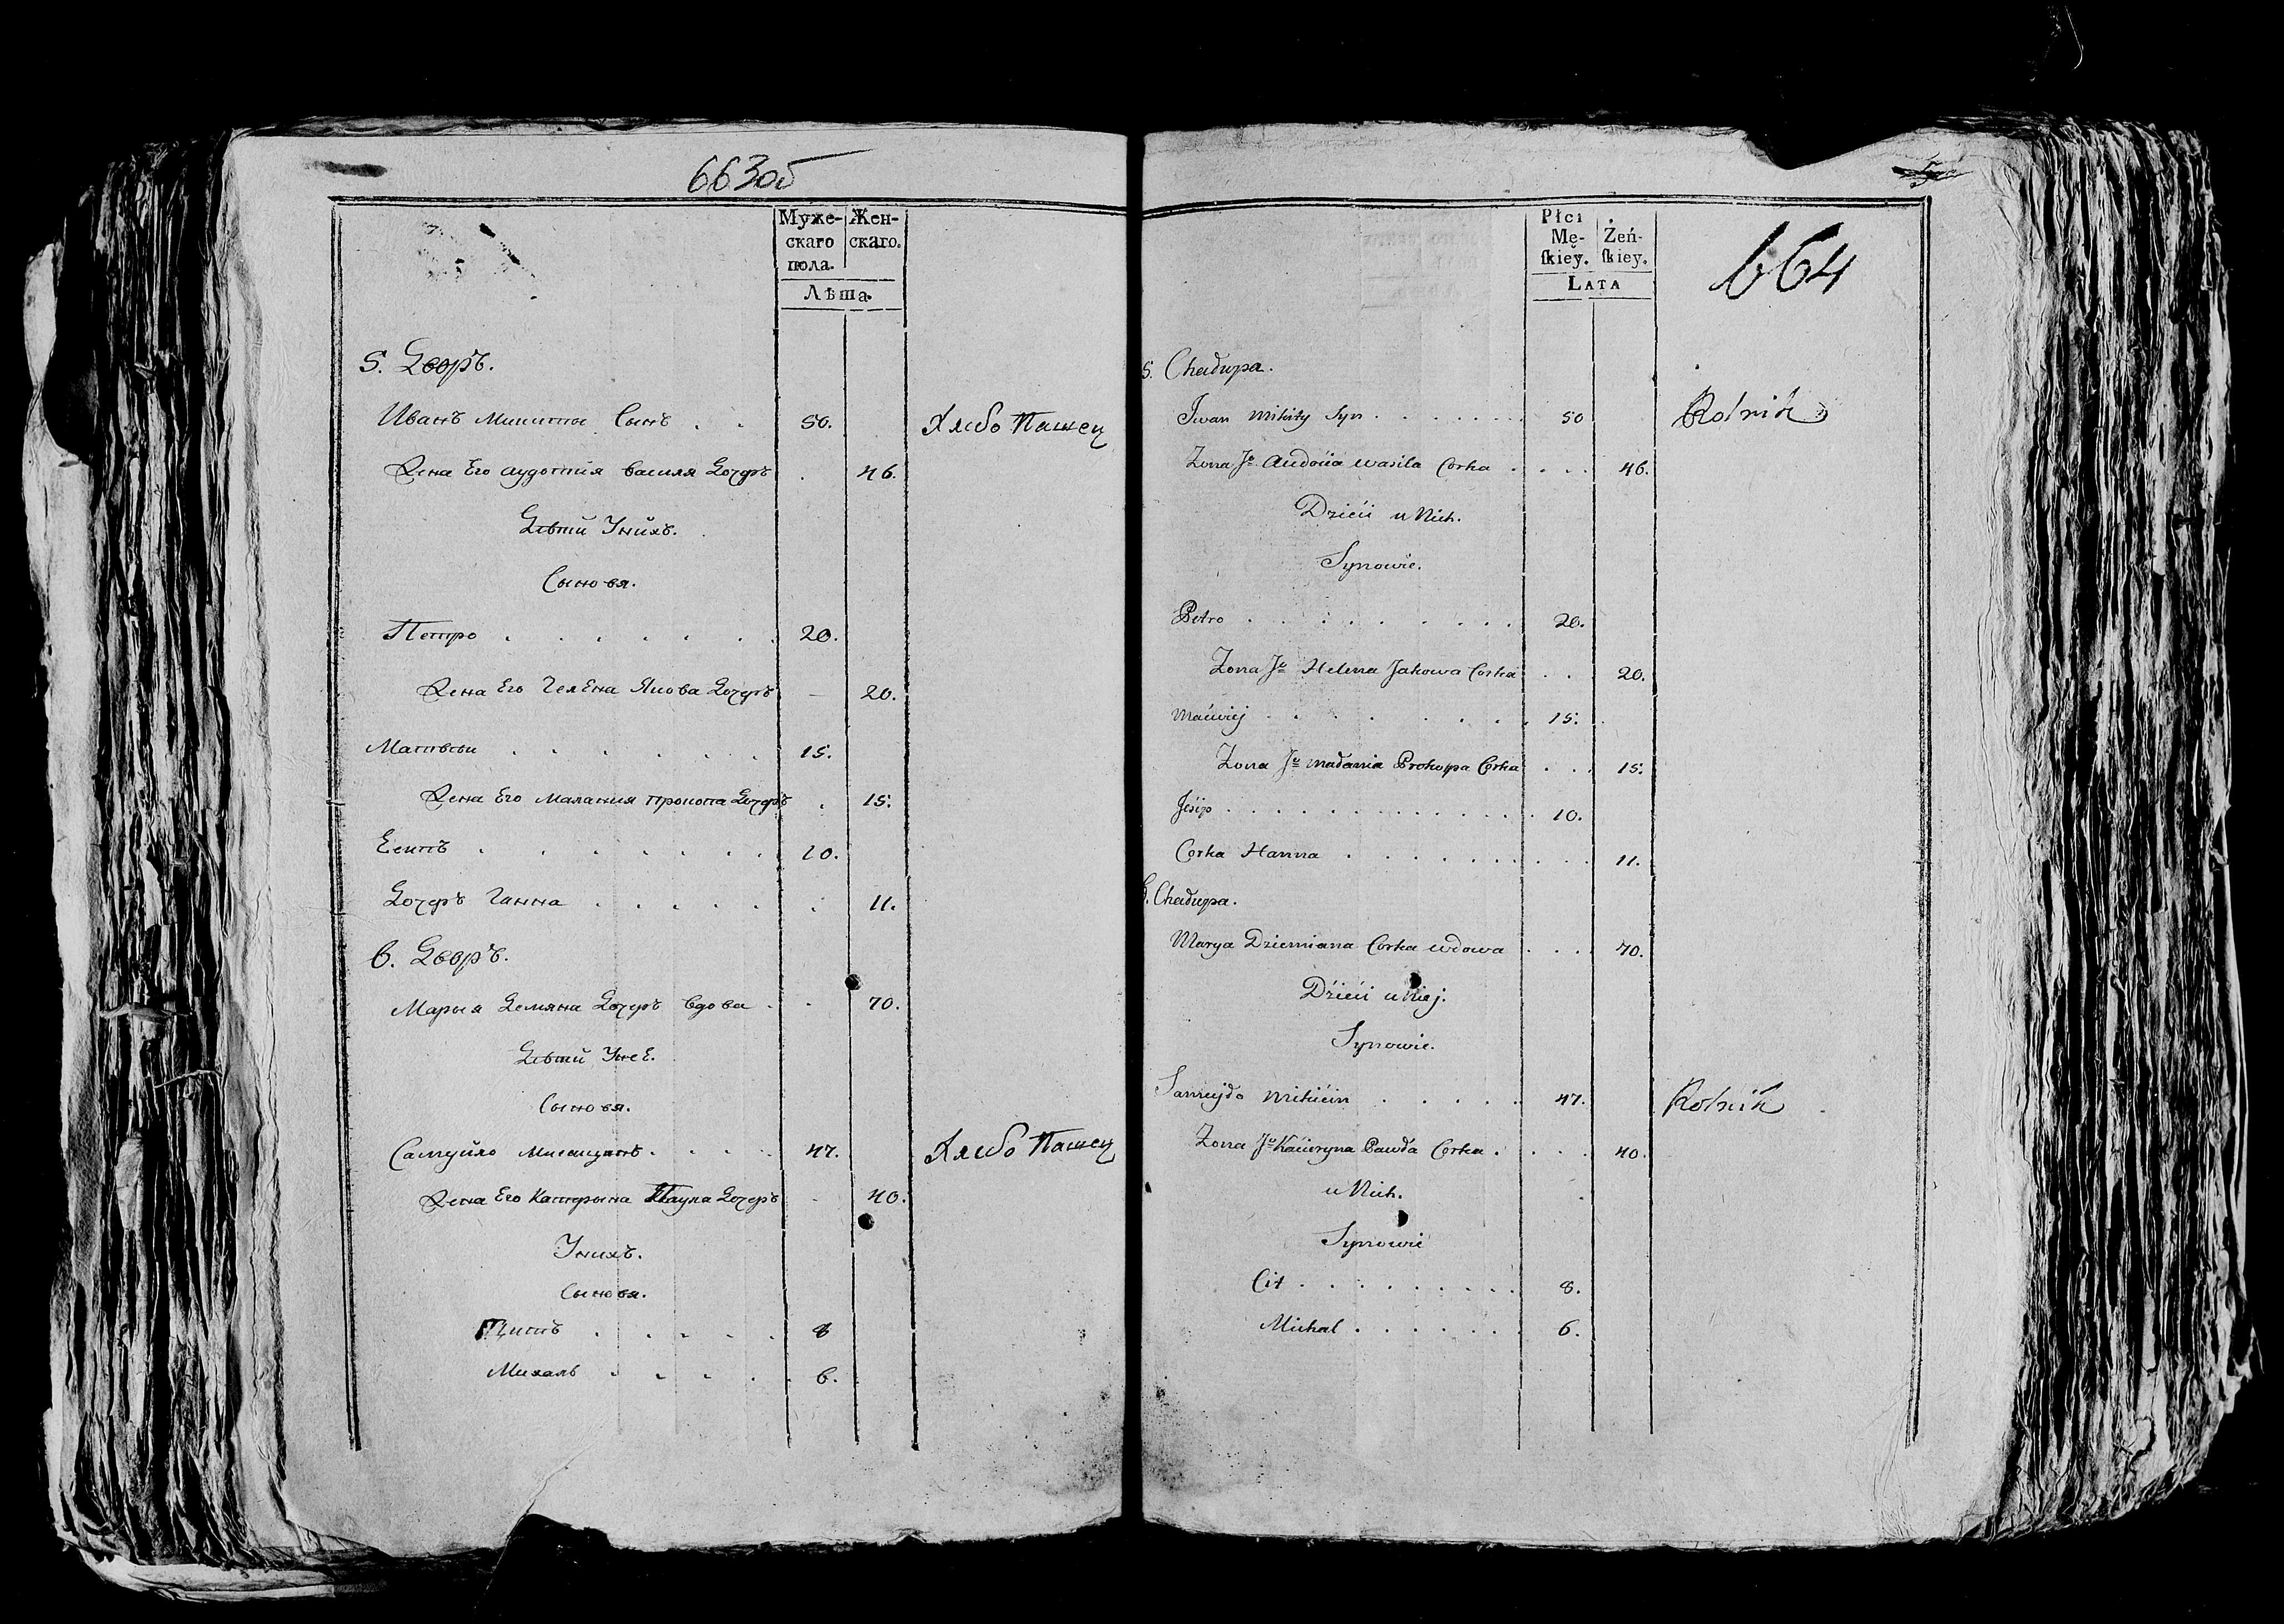 663об
Муже-
скаго
пола.
Жен-
скаго.
Лѣта.
5. Дворъ.
Иванъ Микиты Сынъ . . 50. Хлебо Пашец
Жена Его Аудотия Василя Дочеръ . 46.
Дѣти Унихъ.
Сыновя.
Петро . . . . . . . 20.
Жена Его Гелена Якова Дочеръ 20.
Матвеи . . . . . . . 15.
Жена Его Малания Прокопа Дочеръ . 15.
Есипъ . . . . . . . 10.
Дочеръ Ганна . . . . . . 11.
6. Дворъ.
Марыя Демяна Дочеръ Вдова . . 70.
Дѣти Унее.
Сыновя.
Самуйло . . . . 47. Хлебо Пашец
Жена Его Катерына Паула Дочеръ 40.
Унихъ.
Сыновя.
Титъ . . . . . 8
Михаль . . . . . 6.
Płci
Mę-
ſkiey.
Żeń-
ſkiey.
LATA
664
5. Chałupa.
Iwan Mikity Syn . . . . . . 50 Rolnik
Zona Jo Audocia Wasila Corka . . . . 46.
Dzieci u Nich.
Synowie.
Petro . . . . . . . . . 20.
Zona Jo Helena Jakowa Corka . . 20.
Maciviej . . . . . . . 15.
Zona Jo Małania Prokopa Corka . . . 15.
Jesip . . . . . . . . . . . . 10.
Corka Hanna . . . . . . . . . 11.
6. Chałupa.
Marya Dziemiana Corka Wdowa . . . 70.
Dzieci u Niej.
Synowie.
Samuyło Mikicin . . . . . 47. Rolnik
Zona Jo Kaciryna Pawła Corka . . . . 40.
u Nich.
Synowie
Cit . . . . . . . . 8.
Michal . . . . . . 6.